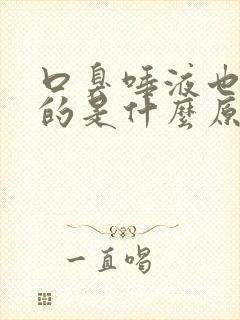 口臭唾液也
的是什麼原
一直唱